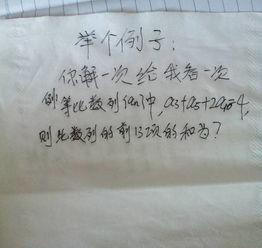 举个例子：
你解一次给我看一次
例 等比数列{an}中, a3+a5+2a10=4,
则此数列的前13项的和为？